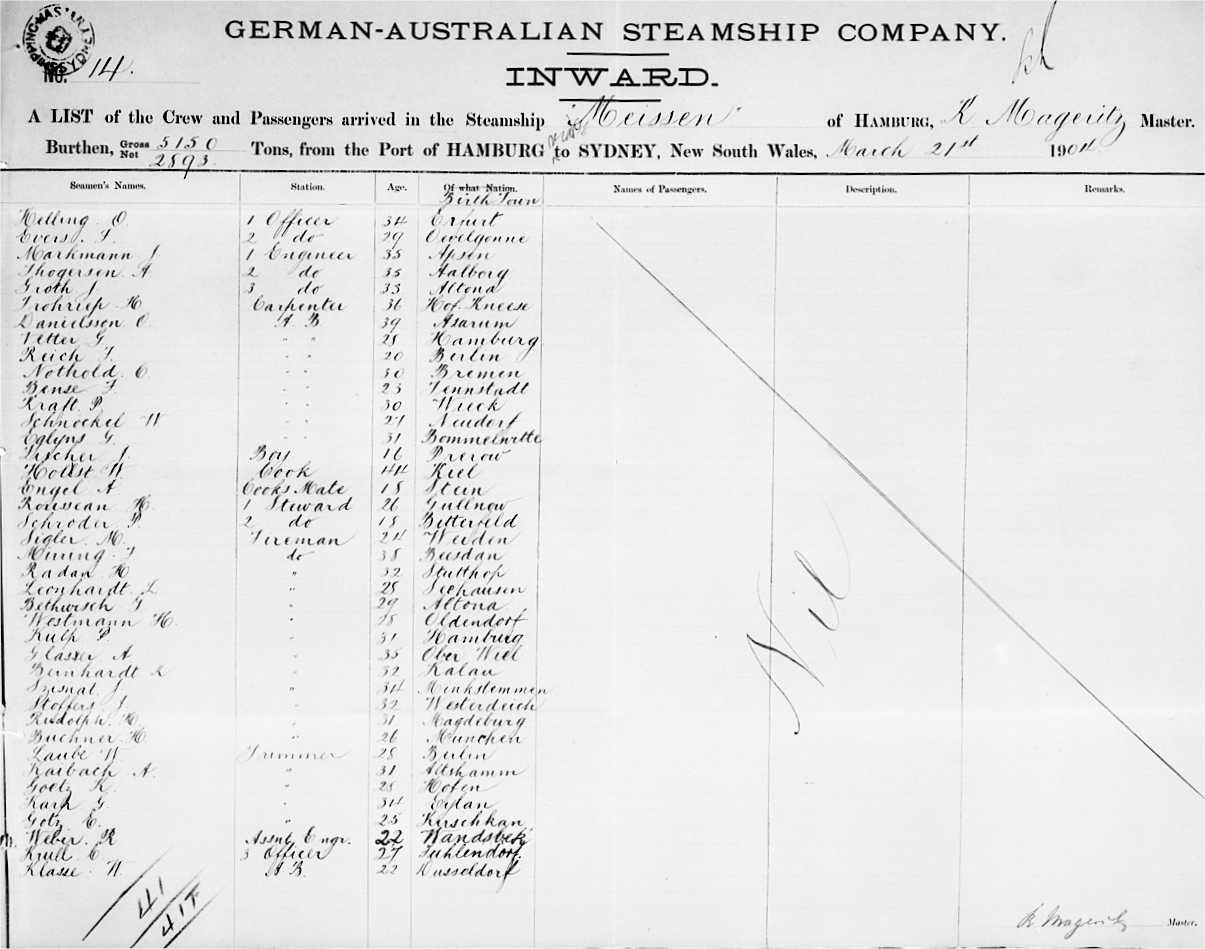 SHIPPING MASTER SYDNEY
GERMAN-AUSTRALIAN STEAMSHIP COMPANY.
No. 14.
INWARD.
A LIST of the Crew and Passengers arrived in the Steamship "Meissen" of HAMBURG, K Mageritz Master.
Burthen, Gross 5150 Net 2893 Tons, from the Port of HAMBURG to SYDNEY, New South Wales, March 21st 1904
Seamen's Names. Station. Age. Of what Nation. Names of Passengers. Description. Remarks.
Birth Town
Helling. O. 1 Officer 34 Erfurt
Evers. F. 2 do 29 Ovelgonne
Markmann J 1 Engineer 35 Apsen
Thogersen A. 2 do 35 Aalborg
Groth J. 3 do 33 Altona
Frohriep H. Carpenter 36 Hof. Kneese
Danielsson O. A. B 39 Asarum
Vetter G. " " 28 Hamburg
Reich F. " " 20 Berlin
Nothold. C. " " 30 Bremen
Bense F. " " 23 Tennstadt
Kraft. P. " " 30 Wieck
Schnockel W " " 27 Neudorf
Eglyns G. " " 31 Bommelsvitte
Fischer J. Boy 16 Prerow
Hollst W. Cook 44 Kiel
Engel A Cooks Mate 18 Stein
Rousseau H. 1 Steward 26 Gullnow
Schroder P. 2 do 18 Bitterfeld
Sigler M. Fireman 24 Werden
Mining. F. do 38 Beesdau
Radan H " 32 Stutthof
Leonhardt L " 28 Seehausen
Bethwisch G " 29 Altona
Westmann H. " 28 Oldendorf
Kulp P " 31 Hamburg
Glasser A " 35 Ober Wiel
Bernhardt L " 32 Kalau
J. " 34
Stoffers J. " 32 Westerdeich
Rudolph. H. " 31 Magdeburg
Buchner H. " 26 Munchen
Laube W. Trimmer 28 Berlin
Raibach A. " 31 Altshamm
Goetz K. " 28 Hofen
Karp G. " 34 Eylau
Gotz E. " 25 Kirschkan
Weber. R Assnt, Engr. 22 Wandsbek
Krull C 3 Officer 27 Fuhlendorf.
Klasse. W. A B. 22 Dusseldorf
Nil
41
41F
K Mageritz Master.